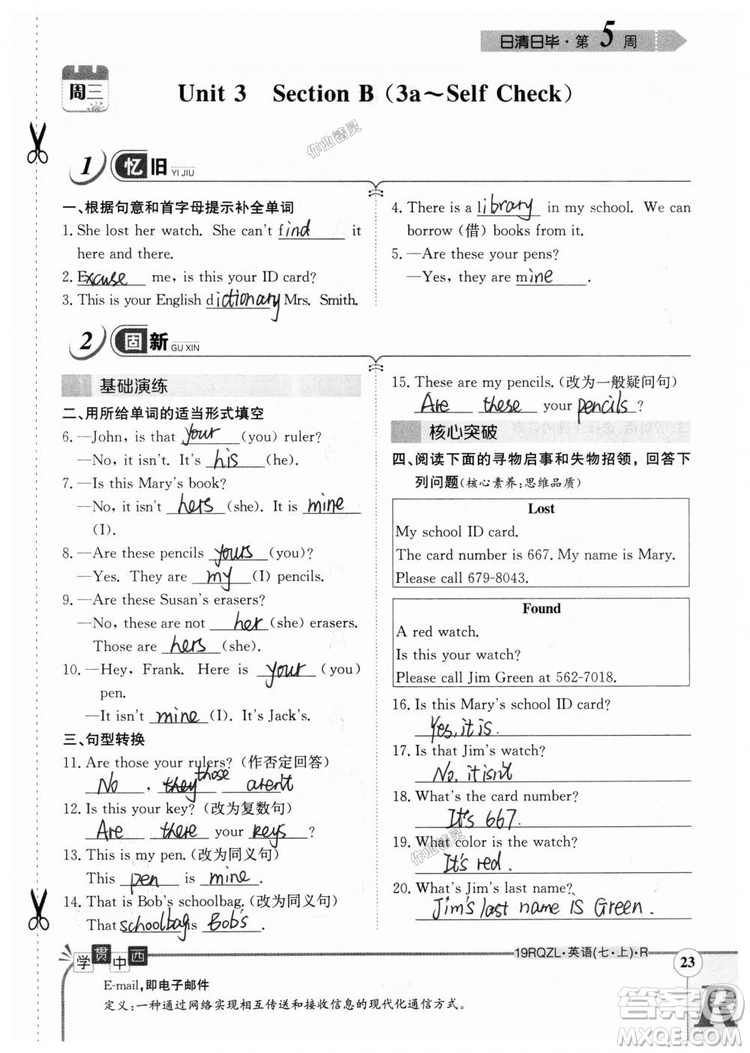 日清日毕·第5周
周三
Unit 3 Section B (3a~Self Check)
作业精灵
1 忆旧 YI JIU
一、根据句意和首字母提示补全单词
1. She lost her watch. She can't find it
here and there.
2. Excuse me, is this your ID card?
3. This is your English dictionary Mrs. Smith.
4. There is a library in my school. We can
borrow (借) books from it.
5. —Are these your pens?
—Yes, they are mine.
2 固新 GU XIN
基础演练
二、用所给单词的适当形式填空
6. —John, is that your (you) ruler?
—No, it isn't. It's his (he).
7. —Is this Mary's book?
—No, it isn't hers (she). It is mine
(I).
8. —Are these pencils yours (you)?
—Yes. They are my (I) pencils.
9. —Are these Susan's erasers?
—No, these are not her (she) erasers.
Those are hers (she).
10. —Hey, Frank. Here is your (you)
pen.
—It isn't mine (I). It's Jack's.
三、句型转换
11. Are those your rulers? (作否定回答)
No, they those aren't
12. Is this your key? (改为复数句)
Are there your keys?
13. This is my pen. (改为同义句)
This pen is mine.
14. That is Bob's schoolbag. (改为同义句)
That schoolbag is Bob's.
15. These are my pencils. (改为一般疑问句)
Are these your pencils?
核心突破
四、阅读下面的寻物启事和失物招领,回答下
列问题(核心素养:思维品质)
Lost
My school ID card.
The card number is 667. My name is Mary.
Please call 679-8043.
Found
A red watch.
Is this your watch?
Please call Jim Green at 562-7018.
16. Is this Mary's school ID card?
Yes, it is.
17. Is that Jim's watch?
No, it isn't
18. What's the card number?
It's 667.
19. What color is the watch?
It's red.
作业精灵
20. What's Jim's last name?
Jim's last name is Green.
学贯中西
E-mail,即电子邮件
定义:一种通过网络实现相互传送和接收信息的现代化通信方式。
19RQZL·英语(七·上)·R
23
R
答案圈
MXQE.COM